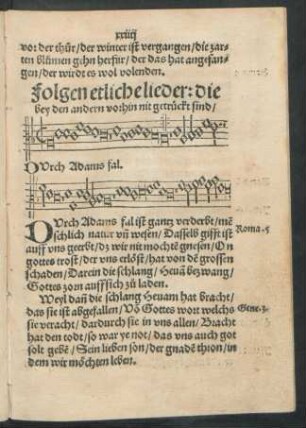 xxiiij
vor der thür/der winter ist vergangen/die zar-
ten blůmen gehn herfür/der das hat angefan-
gen/der wirdt es wol volenden.
Folgen etliche lieder: die
bey den andern vorhin nit getrückt sind/
DUrch Adams fal.
DUrch Adams fal ist gantz verderbt/mē
schlich natur vn̄ wesen/Dasselb gifft ist
auff vns geerbt/dz wir nit mochtē gnesen/On
gottes trost/der vns erlöst/hat von dē grossen
schaden/Darein die schlang/Heuā bezwang/
Gottes zorn auff sich zu laden.
Roma.5
Weyl dañ die schlang Heuam hat bracht/
das sie ist abgefallen/Vō Gottes wort welchs
sie veracht/dardurch sie in vns allen/Bracht
hat den todt/so war ye not/das vns auch got
solt gebē/Sein lieben son/der gnadē thron/in
dem wir möchten leben.
Gene.3.